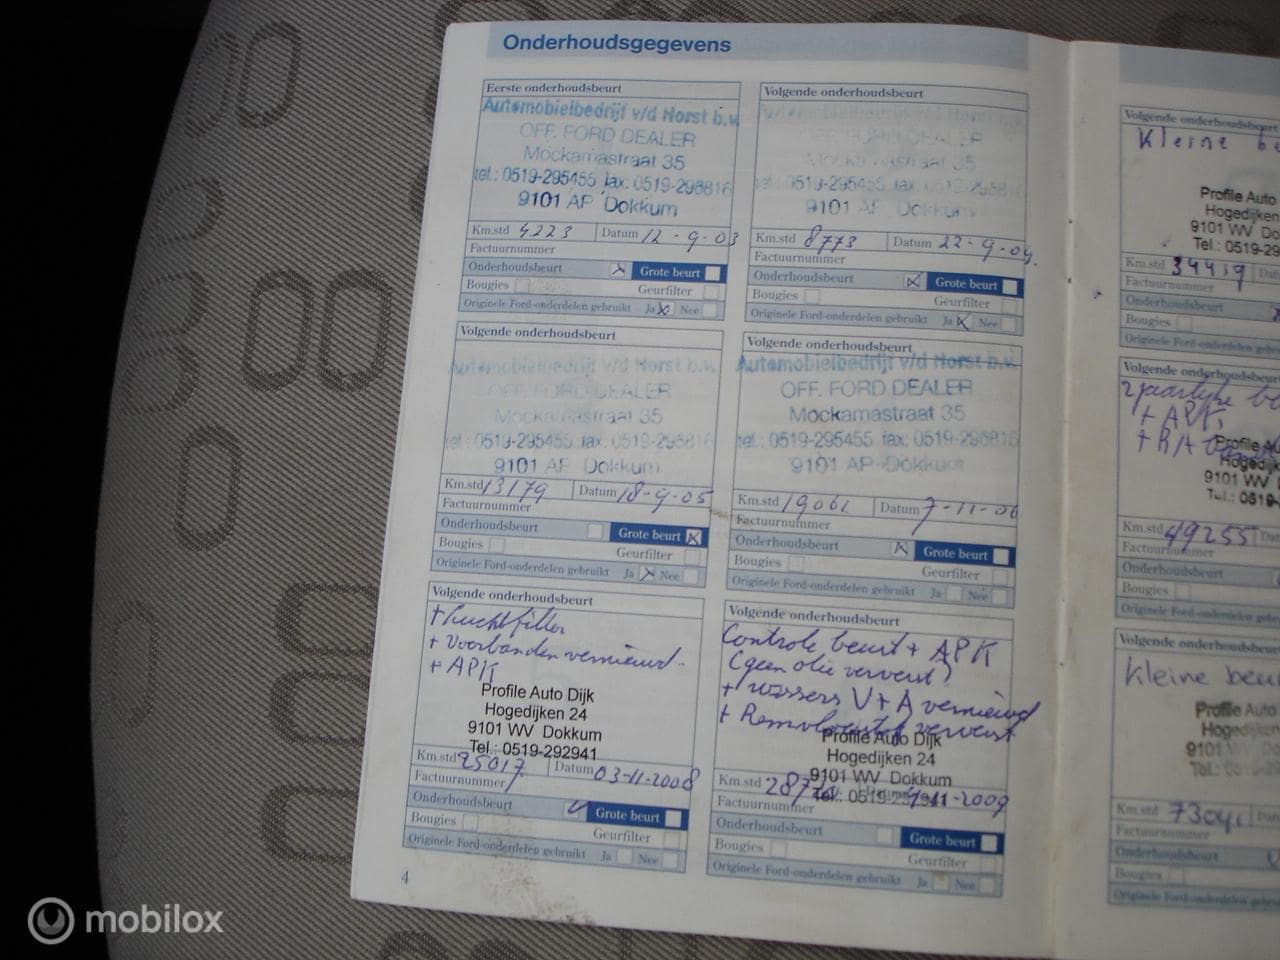 Onderhoudsgegevens
Eerste onderhoudsbeurt
Automobielbedrijf v/d Horst b.v.
OFF. FORD DEALER
Mockamastraat 35
tel.: 0519-295455 fax: 0519-296816
9101 AP Dokkum
Km.std 4223 Datum 12-9-03
Factuurnummer
Onderhoudsbeurt Grote beurt
Bougies Geurfilter
Originele Ford-onderdelen gebruikt Ja x Nee
Volgende onderhoudsbeurt
Automobielbedrijf v/d Horst b.v.
OFF. FORD DEALER
Mockamastraat 35
tel.: 0519-295455 fax: 0519-296816
9101 AP Dokkum
Km.std 8773 Datum 22-9-04.
Factuurnummer
Onderhoudsbeurt Grote beurt
Bougies Geurfilter
Originele Ford-onderdelen gebruikt Ja x Nee
Volgende onderhoudsbeurt
Automobielbedrijf v/d Horst b.v.
OFF. FORD DEALER
Mockamastraat 35
tel.: 0519-295455 fax: 0519-296816
9101 AP Dokkum
Km.std 13179 Datum 18-9-05
Factuurnummer
Onderhoudsbeurt Grote beurt x
Bougies Geurfilter
Originele Ford-onderdelen gebruikt Ja x Nee
Volgende onderhoudsbeurt
Automobielbedrijf v/d Horst b.v.
OFF. FORD DEALER
Mockamastraat 35
tel.: 0519-295455 fax: 0519-296816
9101 AP Dokkum
Km.std 19061 Datum 7-11-06
Factuurnummer
Onderhoudsbeurt Grote beurt
Bougies Geurfilter
Originele Ford-onderdelen gebruikt Ja Nee
Volgende onderhoudsbeurt
+ Luchtfilter
+ Voorbanden vernieuwd.
+ APK
Profile Auto Dijk
Hogedijken 24
9101 WV Dokkum
Tel.: 0519-292941
Km.std 25017 Datum 03-11-2008
Factuurnummer
Onderhoudsbeurt Grote beurt
Bougies Geurfilter
Originele Ford-onderdelen gebruikt Ja Nee
Volgende onderhoudsbeurt
Controle beurt + APK
(geen olie ververst)
+ wissers V+A vernieuwd
+ Remvloeistof ververst
Profile Auto Dijk
Hogedijken 24
9101 WV Dokkum
Tel.: 0519-292941
Km.std 11-2009
Factuurnummer
Onderhoudsbeurt Grote beurt
Bougies Geurfilter
Originele Ford-onderdelen gebruikt Ja Nee
4
Volgende onderhoudsbeurt
Kleine be
Profile Auto
Hogedijken
9101 WV Do
Tel.: 0519-
Km.std 34419
Factuurnummer
Onderhoudsbeurt
Bougies
Originele Ford-onderdelen
Volgende onderhoudsbeurt
2 jaarlijkse be
+ APK,
Profile Au
Hogedijk
9101 WV
Tel.: 0519
Km.std 49255
Factuurnummer
Onderhoudsbeurt
Bougies
Originele Ford-onderdelen
Volgende onderhoudsbeurt
Kleine beu
Profile A
Hogedijken
9101 WV
Tel.: 0
Km.std
Factuurnummer
Onderhoudsbeurt
Bougies
Originele Ford-onderdelen
mobilox